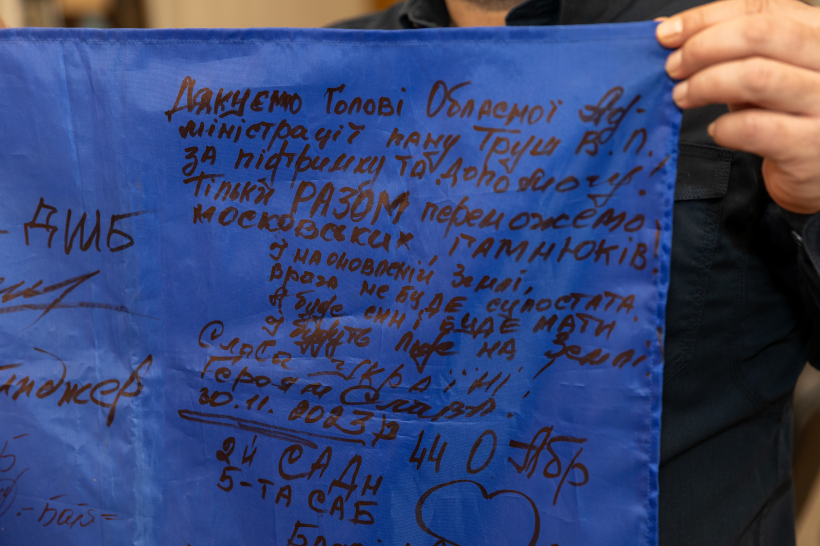 Дякуємо Голові Обласної Ад-
міністрації пану Труш В. П.
за підтримку та допомогу!
Тільки РАЗОМ переможемо
московських гамнюків!
І на оновленій Землі,
врага не буде супостата.
А буде син і буде мати
І будуть люде на Землі
Слава Україні!
Героям Слава!
30.11.2023р
2й САДн 44 ОАбр
5-та САБ
ДШБ